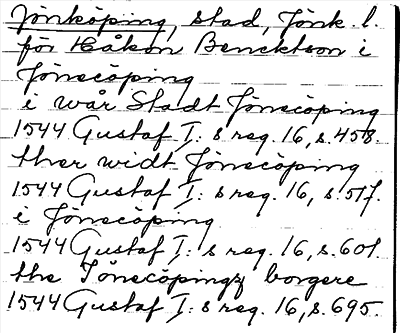 Jönköping, stad, Jönk. l.
för Håkon Bencktson i
Jönecöping
i wår Stadt Jönecöping
1544 Gustaf I: s reg. 16, s. 458.
ther widt Jönecöping
1544 Gustaf I: s reg. 16, s. 517.
i Jönecöping
1544 Gustaf I: s reg. 16, s. 601.
the Jönecöpingz borgere
1544 Gustaf I: s reg. 16, s. 695.